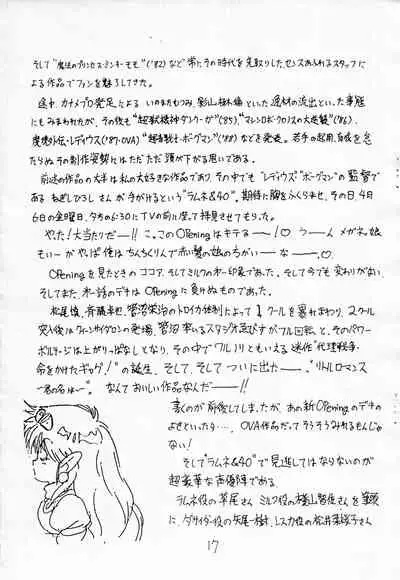 そして"魔法のプリンセス・ミンキーモモ"('82)など常にその時代を先取りした、センスあふれるスタッフに
よる作品でファンを魅了してきた。
途中、カナメプロ発足による いのまたむつみ、影山楙倫といった逸材の流出といった事態
にもみまわれたが、その後も"超獣機神ダンクーガ"('85)、"マシンロボ・クロノスの大逆襲"('86)、
魔境外伝・レディウス('87・OVA)"超音戦士・ボーグマン"('88)などを発表。若手の起用、自戒を怠
たらぬその制作姿勢にはただただ頭が下がる思いである。
前述の作品の大半は私の大好きな作品であり、その中でも"レディウス""ボーグマン"の監督で
ある ねぎしひろし さんが手がけるという"ラムネ&40"。期待に胸をふくらませ、その日、4月
6日の金曜日、夕方の6:30にTVの前に座って拝見させてもらった。
やった!大当たりだー!!こ。このOpeningはキテるーーー!♡ うーん メガネっ娘
もいーが やっぱ俺はちんちくりんで赤い髪の娘の方がいーな ー。♡
Openingを見たときの ココア、そしてミルクの第一印象であった。そして今でも変わりがない。
そしてまた、第一話のデキは Openingに負けぬものであった。
松尾慎、斉藤卓也、菅沼栄治のトロイカ体制によって1クールを暴れまわり、2クール
突入後はクィーンサイダロンの登場、菅沼率いるスタジオ
がフル回転と、そのパワー
ボルテージは上がりっぱなしとなり、その中でワル
ノリともいえる迷作"代理戦争・
命をかけたギャグ!"の誕生、そして、そして ついに出たーー!。"リトルロマンス
〜君の名は〜"。 なんておいしい作品なんだーー!!
書くのが前後してしまったが、あの新Openingのデキの
よさといったら…、OVA作品だってそうそうみれるもんじゃ
ない!
そして"ラムネ&40"で見逃してはならないのが
超豪華な声優陣である。
ラムネ役の草尾さん ミルク役の横山智佐さんを筆頭
に、ダ・サイダー役の矢尾一樹、レスカ役の松井菜桜子さん
17